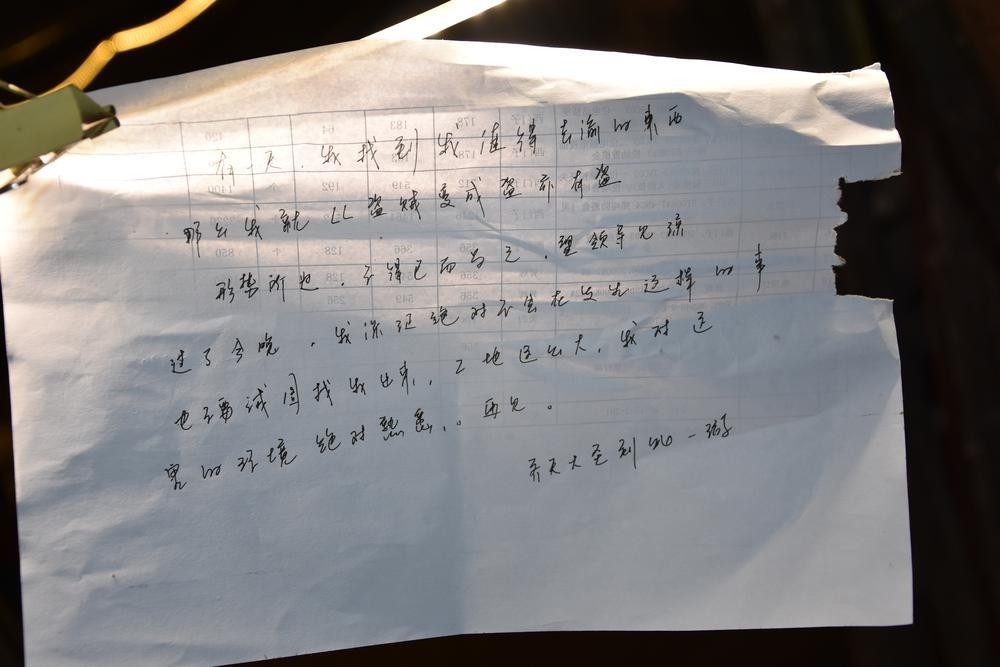 有一天.我找到我值得去偷的东西
那么我就以盗贼变成盗亦有盗
形势所迫.不得已而为之.望领导见谅
过了今晚.我保证绝对不会在发生这样的事
也不要试图找我出来.工地这么大.我对这
里的环境绝对熟悉.。再见。
齐天大圣到此一游